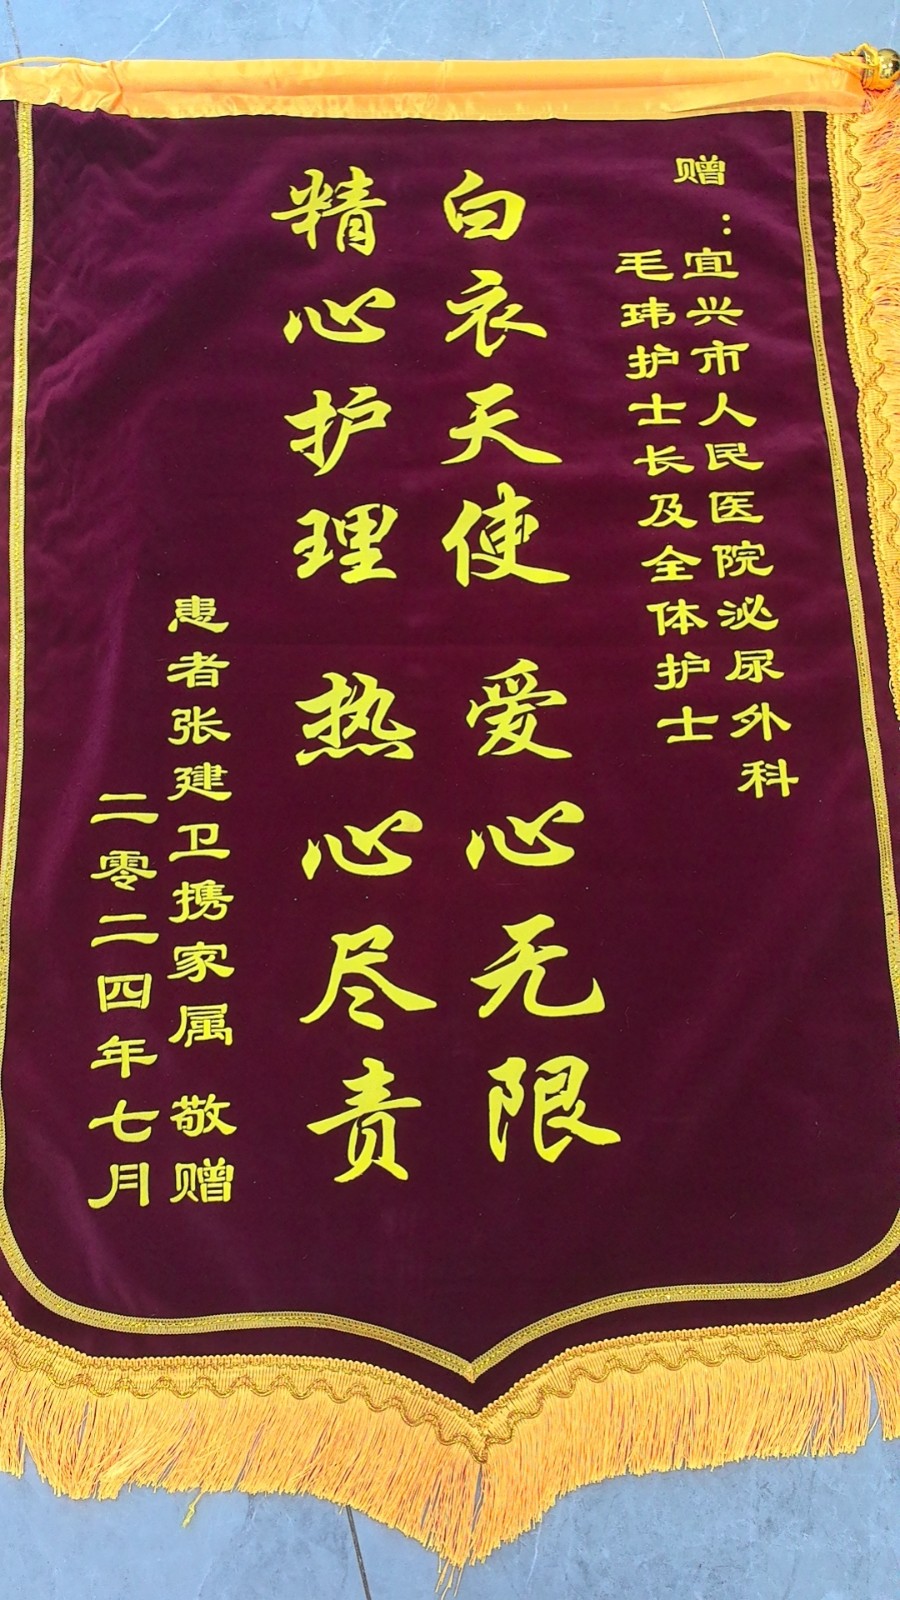 赠：
宜兴市人民医院泌尿外科
毛玮护士长及全体护士
白衣天使 爱心无限
精心护理 热心尽责
患者张建卫携家属 敬赠
二零二四年七月